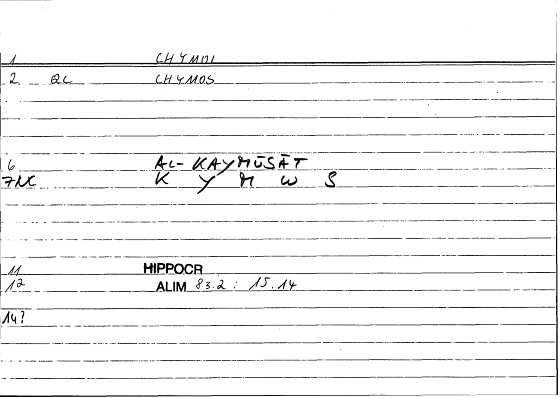 1 CHYMOI
2 QC CHYMOS
6 AL-KAYMŪSĀT
7NC K Y M W S
11 HIPPOCR
12 ALIM 83.2 : 15.14
14?